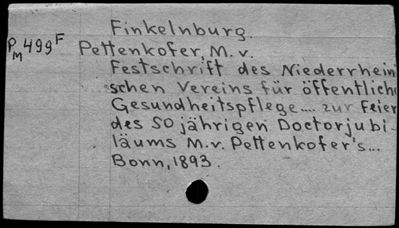 Finkelnburg.
PM 499F Pettenkofer, M. v.
Festschrift des Niederrheini
schen Vereins für öffentliche
Gesundheitspflege.... zur Feier
des 50 jährigen Doctorjubi-
läums M. v. Pettenkofer's...
Bonn, 1893.